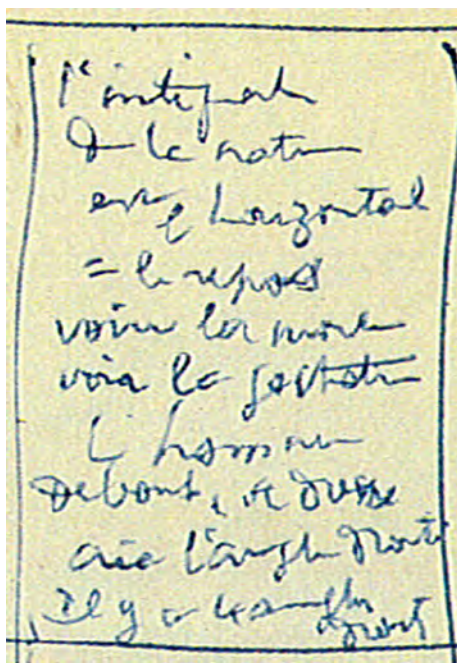 l'intégrale
de la nature
est l'horizontal
= le repos
voire la mort
voire la gestation
L'homme
debout, se dresse
crée l'angle droit
Il y a les angles
droit